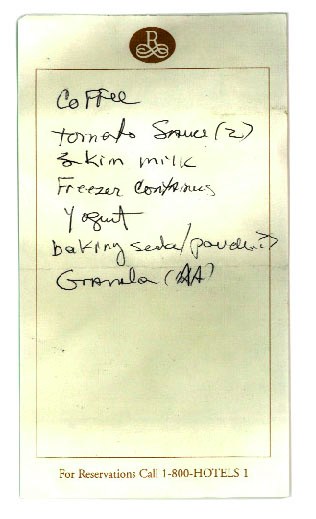 R
Coffee
tomato Sauce (2)
skim milk
Freezer Containers
Yogurt
baking soda/powder?
Granola (AA)
For Reservations Call 1-800-HOTELS 1